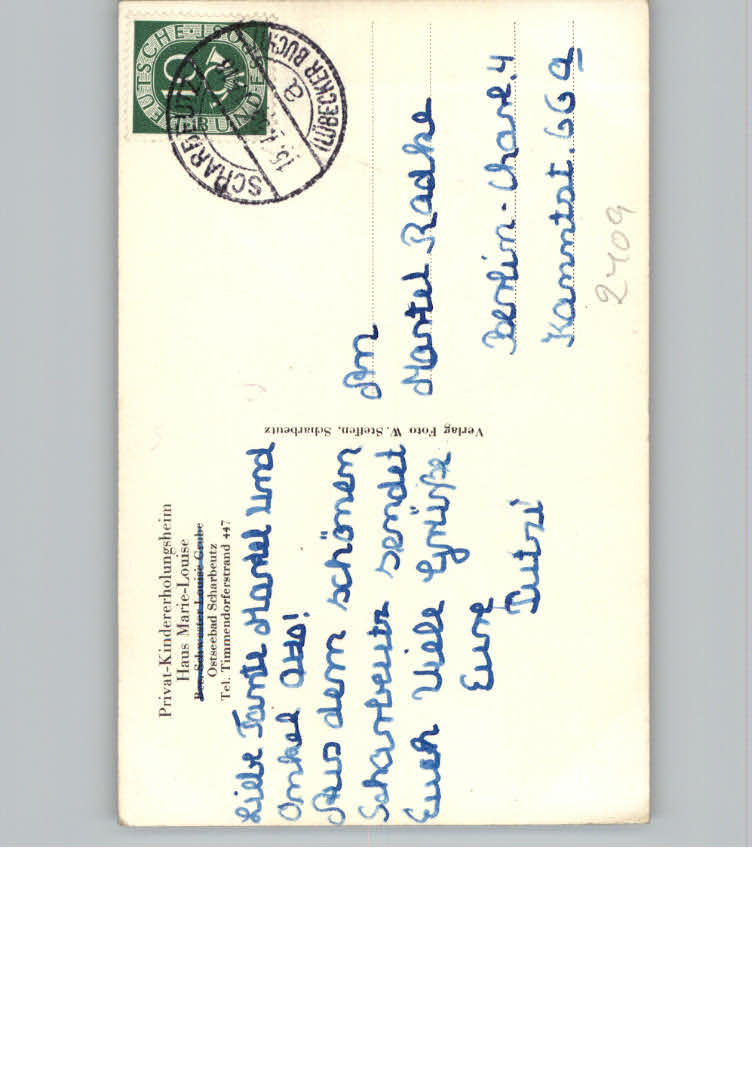 Privat-Kindererholungsheim
Haus Marie-Louise
Bes. Schwester Louise Grube
Ostseebad Scharbeutz
Tel. Timmendorferstrand 447
Liebe Tante Martel und
Onkel Otto!
Aus dem schönen
Scharbeutz sendet
Euch Viele Grüße
Eure
Verlag Foto W. Steffen, Scharbeutz
DEUTSCHE BUNDESPOST
10
SCHARBEUTZ
(LÜBECKER BUCHT)
a
An
Martel Radke
Berlin-Charl. 4
Kanntst. 66 a
2409